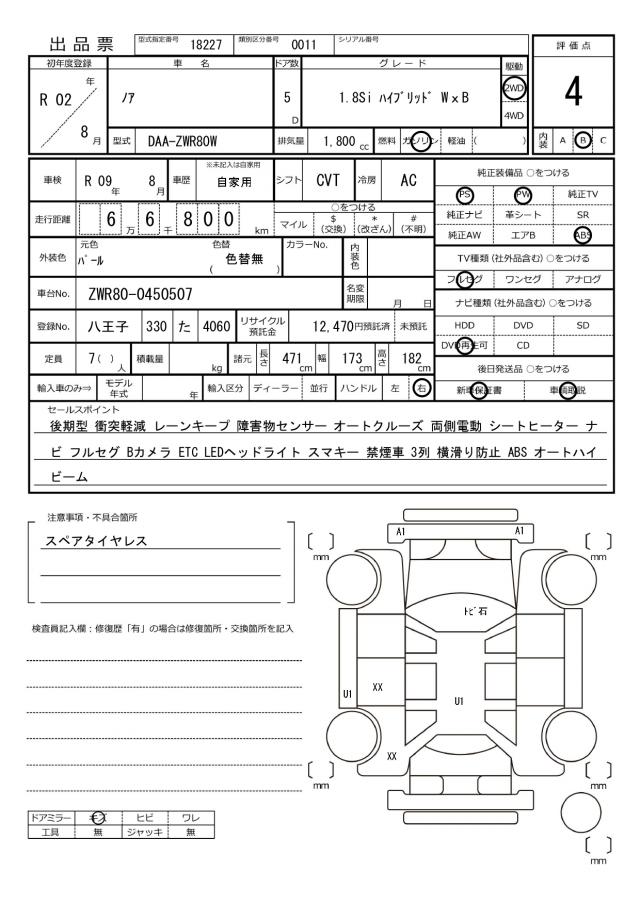 出品票 型式指定番号 18227 類別区分番号 0011 シリアル番号
評価点
4
内装 A B C
初年度登録 車名 ドア数 グレード 駆動
R 02 年 8 月 ノア 5 D 1.8Si ハイブリッド W×B 2WD 4WD
型式 DAA-ZWR80W 排気量 1,800 cc 燃料 ガソリン 軽油 ( )
車検 R 09 年 8 月 車歴 ※未記入は自家用 自家用 シフト CVT 冷房 AC
走行距離 6 万 6 千 8 0 0 km
○をつける
マイル $(交換) *(改ざん) #(不明)
外装色 元色 パール 色替 ( 色替無 ) カラーNo. 内装色
車台No. ZWR80-0450507 名変期限 月 日
登録No. 八王子 330 た 4060 リサイクル預託金 12,470円預託済 未預託
定員 7( ) 人 積載量 kg 諸元 長さ 471 cm 幅 173 cm 高さ 182 cm
輸入車のみ⇒ モデル年式 年 輸入区分 ディーラー 並行 ハンドル 左 右
純正装備品 ○をつける
PS PW 純正TV
純正ナビ 革シート SR
純正AW エアB ABS
TV種類 (社外品含む) ○をつける
フルセグ ワンセグ アナログ
ナビ種類 (社外品含む) ○をつける
HDD DVD SD
DVD再生可 CD
後日発送品 ○をつける
新車保証書 車輌取説
セールスポイント
後期型 衝突軽減 レーンキープ 障害物センサー オートクルーズ 両側電動 シートヒーター ナ
ビ フルセグ Bカメラ ETC LEDヘッドライト スマキー 禁煙車 3列 横滑り防止 ABS オートハイ
ビーム
注意事項・不具合箇所
スペアタイヤレス
検査員記入欄：修復歴「有」の場合は修復箇所・交換箇所を記入
ドアミラー キズ ヒビ ワレ
工具 無 ジャッキ 無
A1 A1
mm mm
トビ石
U1 XX U1
XX
mm mm
mm